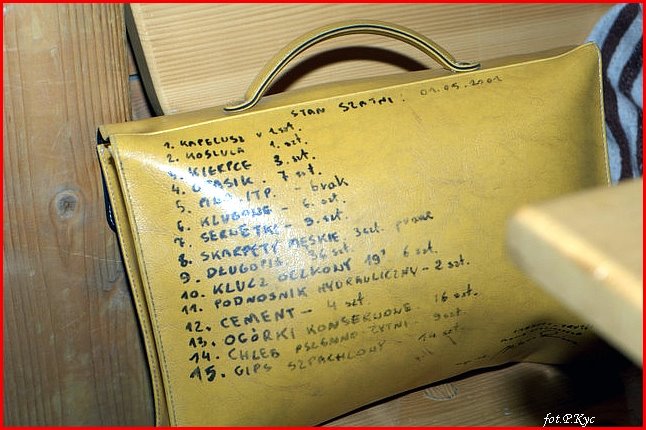 STAN SZATNI: 01.05.2001
1. KAPELUSZ 1 szt.
2. KOSZULA 1. szt.
3. KIERPCE 3. szt.
4. PASIK. 7 szt.
5. ITP. - brak
6. KLUBOWE - 6. szt.
7. SERWETKI - 9. szt.
8. SKARPETY MĘSKIE 3szt. prawe
9. DŁUGOPIS - 36 szt.
10. KLUCZ OCZKOWY 19' 6 szt.
11. PODNOŚNIK HYDRAULICZNY - 2 szt.
12. CEMENT - 4 szt.
13. OGÓRKI KONSERWOWE 16 szt.
14. CHLEB PSZENNO-ŻYTNI - 9szt.
15. GIPS SZPACHLOWY - 14 szt.
fot.P.Kyc